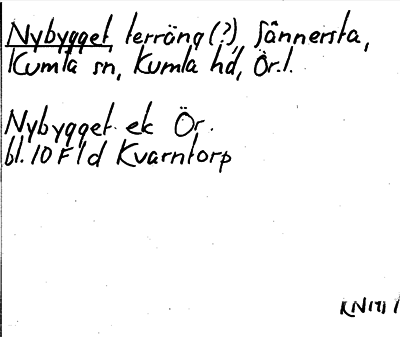 Nybygget terräng (?), Sännersta,
Kumla sn, Kumla hd, Ör.l.
Nybygget ek Ör.
bl. 10 F 1 d Kvarntorp